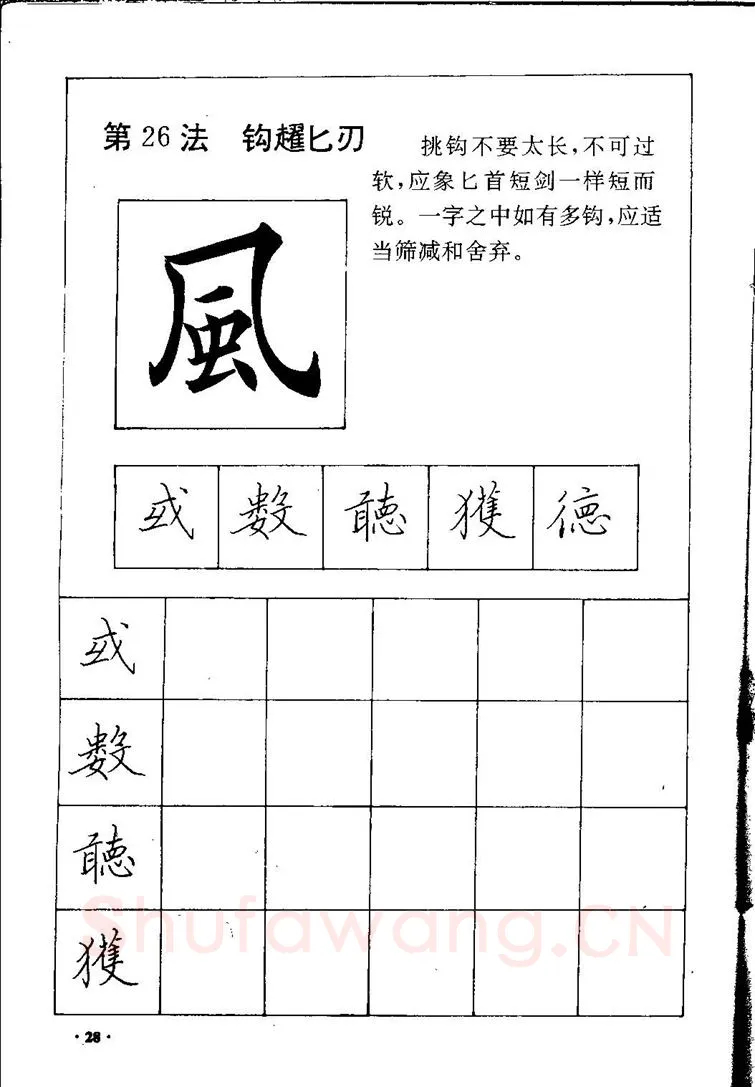 第26法 钩趯匕刃
挑钩不要太长，不可过
软，应象匕首短剑一样短而
锐。一字之中如有多钩，应适
当筛减和舍弃。
風
或 數 聽 獲 德
或
數
聽
獲
Shufawang.CN
·28·